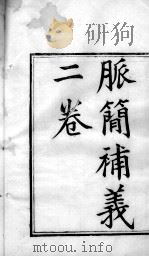 脈簡補義
二卷
研狗
mtoou.info
mtoou.info